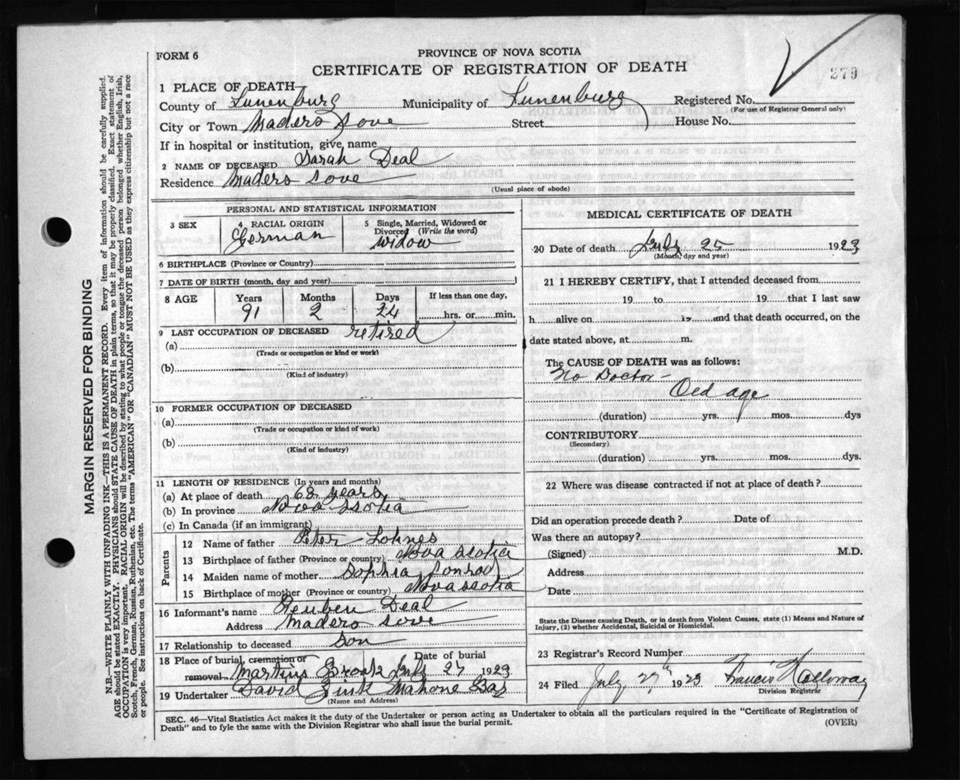 FORM 6
PROVINCE OF NOVA SCOTIA
CERTIFICATE OF REGISTRATION OF DEATH
279
1 PLACE OF DEATH
County of Lunenburg Municipality of Lunenburg Registered No.
(For use of Registrar General only)
City or Town Maders Cove Street House No.
If in hospital or institution, give name
2 NAME OF DECEASED Sarah Deal
Residence Maders Cove
(Usual place of abode)
MARGIN RESERVED FOR BINDING
N.B.—WRITE PLAINLY WITH UNFADING INK—THIS IS A PERMANENT RECORD. Every item of information should be carefully supplied.
AGE should be stated EXACTLY. PHYSICIANS should STATE CAUSE OF DEATH in plain terms, so that it may be properly classified. Exact statement of
OCCUPATION is very important. RACIAL ORIGIN will be described by stating to what people or tongue the deceased person belonged whether English, Irish,
Scotch, French, German, Russian, Ruthenian, etc. The terms "AMERICAN" OR "CANADIAN" MUST NOT BE USED as they express citizenship but not a race
or people. See instructions on back of Certificate.
PERSONAL AND STATISTICAL INFORMATION
3 SEX
4 RACIAL ORIGIN
German
5 Single, Married, Widowed or
Divorced (Write the word)
Widow
6 BIRTHPLACE (Province or Country)
7 DATE OF BIRTH (month, day and year)
8 AGE Years Months Days If less than one day,
91 2 24 hrs. or min.
9 LAST OCCUPATION OF DECEASED retired
(a)
(Trade or occupation or kind or work)
(b)
(Kind of industry)
10 FORMER OCCUPATION OF DECEASED
(a)
(Trade or occupation or kind of work)
(b)
(Kind of industry)
11 LENGTH OF RESIDENCE (In years and months)
(a) At place of death 68 years
(b) In province Nova Scotia
(c) In Canada (if an immigrant)
Parents
12 Name of father Peter Lohnes
13 Birthplace of father (Province or country) Nova Scotia
14 Maiden name of mother Sophia Conrad
15 Birthplace of mother (Province or country) Nova Scotia
16 Informant's name Reuben Deal
Address Maders Cove
17 Relationship to deceased Son
18 Place of burial, cremation or Date of burial
removal Martins Brook July 27 1923
19 Undertaker David Zink Mahone Bay
(Name and Address)
MEDICAL CERTIFICATE OF DEATH
20 Date of death July 25 1923
(Month, day and year)
21 I HEREBY CERTIFY, that I attended deceased from
19 to 19 that I last saw
h alive on 19 and that death occurred, on the
date stated above, at m.
The CAUSE OF DEATH was as follows:
No Doctor -
Old age
(duration) yrs. mos. dys
CONTRIBUTORY
(Secondary)
(duration) yrs. mos. dys.
22 Where was disease contracted if not at place of death?
Did an operation precede death? Date of
Was there an autopsy?
(Signed) M.D.
Address
Date
State the Disease causing Death, or in death from Violent Causes, state (1) Means and Nature of
Injury, (2) whether Accidental, Suicidal or Homicidal.
23 Registrar's Record Number
24 Filed July 27th 1923 Francis Holloway
Division Registrar
SEC. 46—Vital Statistics Act makes it the duty of the Undertaker or person acting as Undertaker to obtain all the particulars required in the "Certificate of Registration of
Death" and to fyle the same with the Division Registrar who shall issue the burial permit.
(OVER)